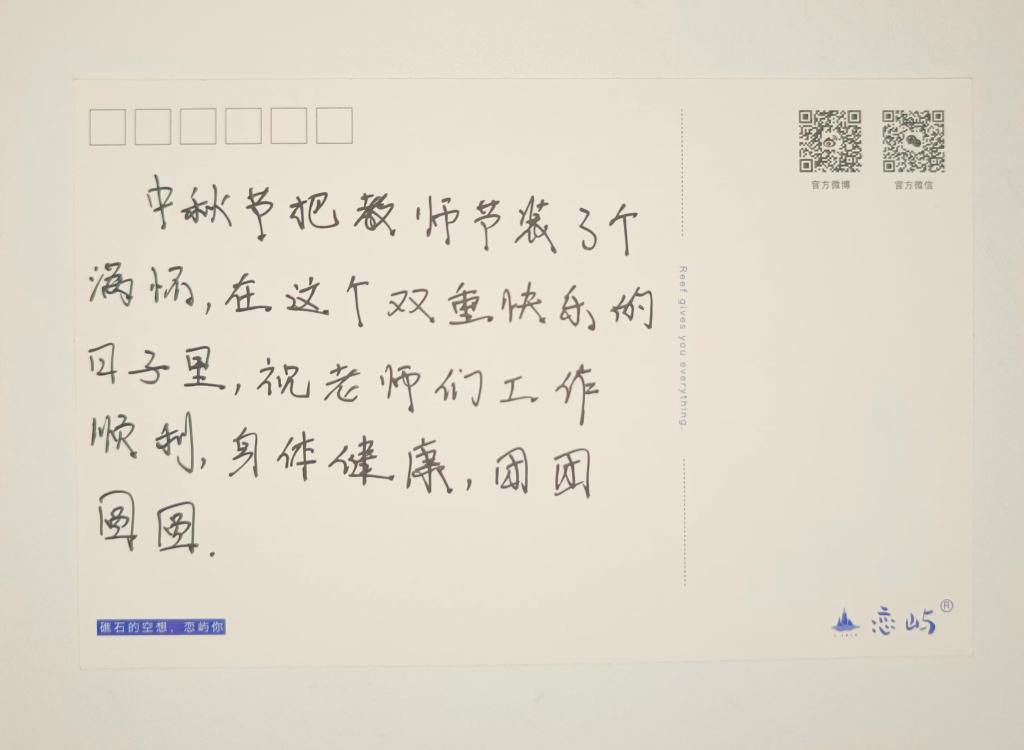 中秋节把教师节装了个
满怀,在这个双重快乐的
日子里,祝老师们工作
顺利,身体健康,团团
圆圆.
礁石的空想，恋屿你
Reef gives you everything.
官方微博
官方微信
恋屿®